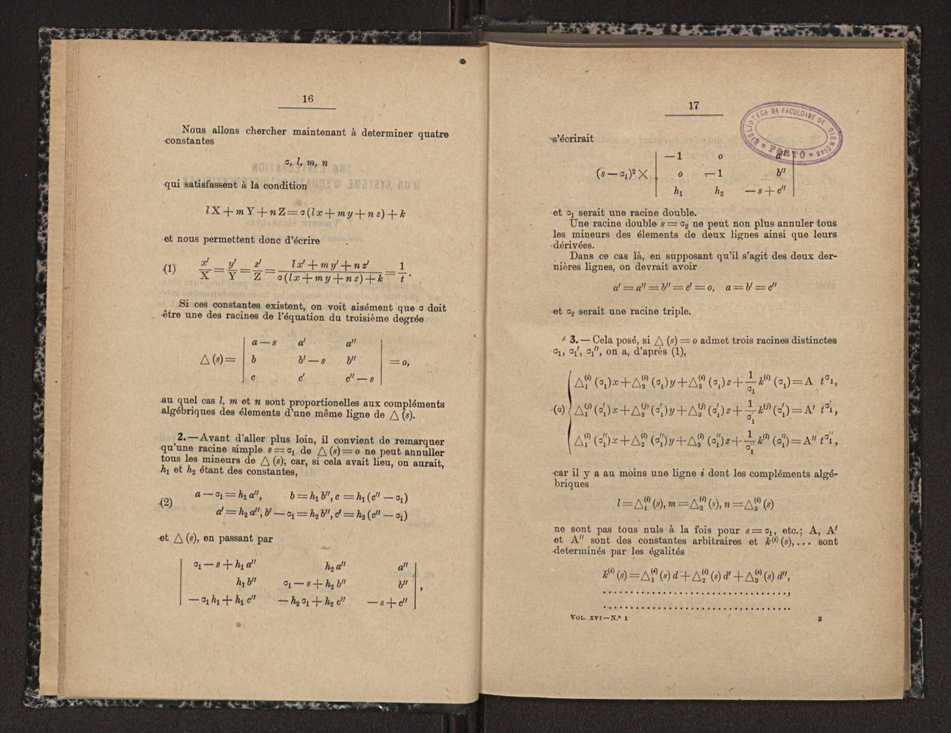 16
Nous allons chercher maintenant à determiner quatre
constantes
σ, l, m, n
qui satisfassent à la condition
lX + mY + nZ = σ(lx + my + nz) + k
et nous permettent donc d'écrire
(1) x′/X = y′/Y = z′/Z = (lx′ + my′ + nz′)/(σ(lx + my + nz) + k) = 1/t.
Si ces constantes existent, on voit aisément que σ doit
être une des racines de l'équation du troisième degrée
a — s a′ a″
△(s) = b b′ — s b″ = o,
c c′ c″ — s
au quel cas l, m et n sont proportionelles aux compléments
algébriques des élements d'une même ligne de △(s).
2. — Avant d'aller plus loin, il convient de remarquer
qu'une racine simple s = σ₁ de △(s) = o ne peut annuller
tous les mineurs de △(s); car, si cela avait lieu, on aurait,
h₁ et h₂ étant des constantes,
a — σ₁ = h₁a″, b = h₁b″, c = h₁(c″ — σ₁)
(2)
a′ = h₂a″, b′ — σ₁ = h₂b″, c′ = h₂(c″ — σ₁)
et △(s), en passant par
σ₁ — s + h₁a″ h₂a″ a″
h₁b″ σ₁ — s + h₂b″ b″ ,
— σ₁h₁ + h₁c″ — h₂σ₁ + h₂c″ — s + c″
17
BIBLIOTECA DA FACULDADE DE CIENCIAS
PORTO
s'écrirait
— 1 o a″
(s — σ₁)² × o — 1 b″
h₁ h₂ — s + c″
et σ₁ serait une racine double.
Une racine double s = σ₂ ne peut non plus annuler tous
les mineurs des élements de deux lignes ainsi que leurs
dérivées.
Dans ce cas là, en supposant qu'il s'agit des deux der-
nières lignes, on devrait avoir
a′ = a″ = b″ = c′ = o, a = b′ = c″
et σ₂ serait une racine triple.
3. — Cela posé, si △(s) = o admet trois racines distinctes
σ₁, σ₁′, σ₁″, on a, d'après (1),
△₁⁽ⁱ⁾(σ₁)x + △₂⁽ⁱ⁾(σ₁)y + △₃⁽ⁱ⁾(σ₁)z + 1/σ₁ k⁽ⁱ⁾(σ₁) = A t^σ₁,
(σ) △₁⁽ʲ⁾(σ₁′)x + △₂⁽ʲ⁾(σ₁′)y + △₃⁽ʲ⁾(σ₁′)z + 1/σ₁′ k⁽ʲ⁾(σ₁′) = A′ t^σ₁′,
△₁⁽ˡ⁾(σ₁″)x + △₂⁽ˡ⁾(σ₁″)y + △₃⁽ˡ⁾(σ₁″)z + 1/σ₁″ k⁽ˡ⁾(σ₁″) = A″ t^σ₁″,
car il y a au moins une ligne i dont les compléments algé-
briques
l = △₁⁽ⁱ⁾(s), m = △₂⁽ⁱ⁾(s), n = △₃⁽ⁱ⁾(s)
ne sont pas tous nuls à la fois pour s = σ₁, etc.; A, A′
et A″ sont des constantes arbitraires et k⁽ⁱ⁾(s), . . . sont
determinés par les égalités
k⁽ⁱ⁾(s) = △₁⁽ⁱ⁾(s)d + △₂⁽ⁱ⁾(s)d′ + △₃⁽ⁱ⁾(s)d″,
. . . . . . . . . . . . . . . . . . . . . . . . . . . . . . ,
. . . . . . . . . . . . . . . . . . . . . . . . . . . . . .
VOL. XVI — N.º 1 2